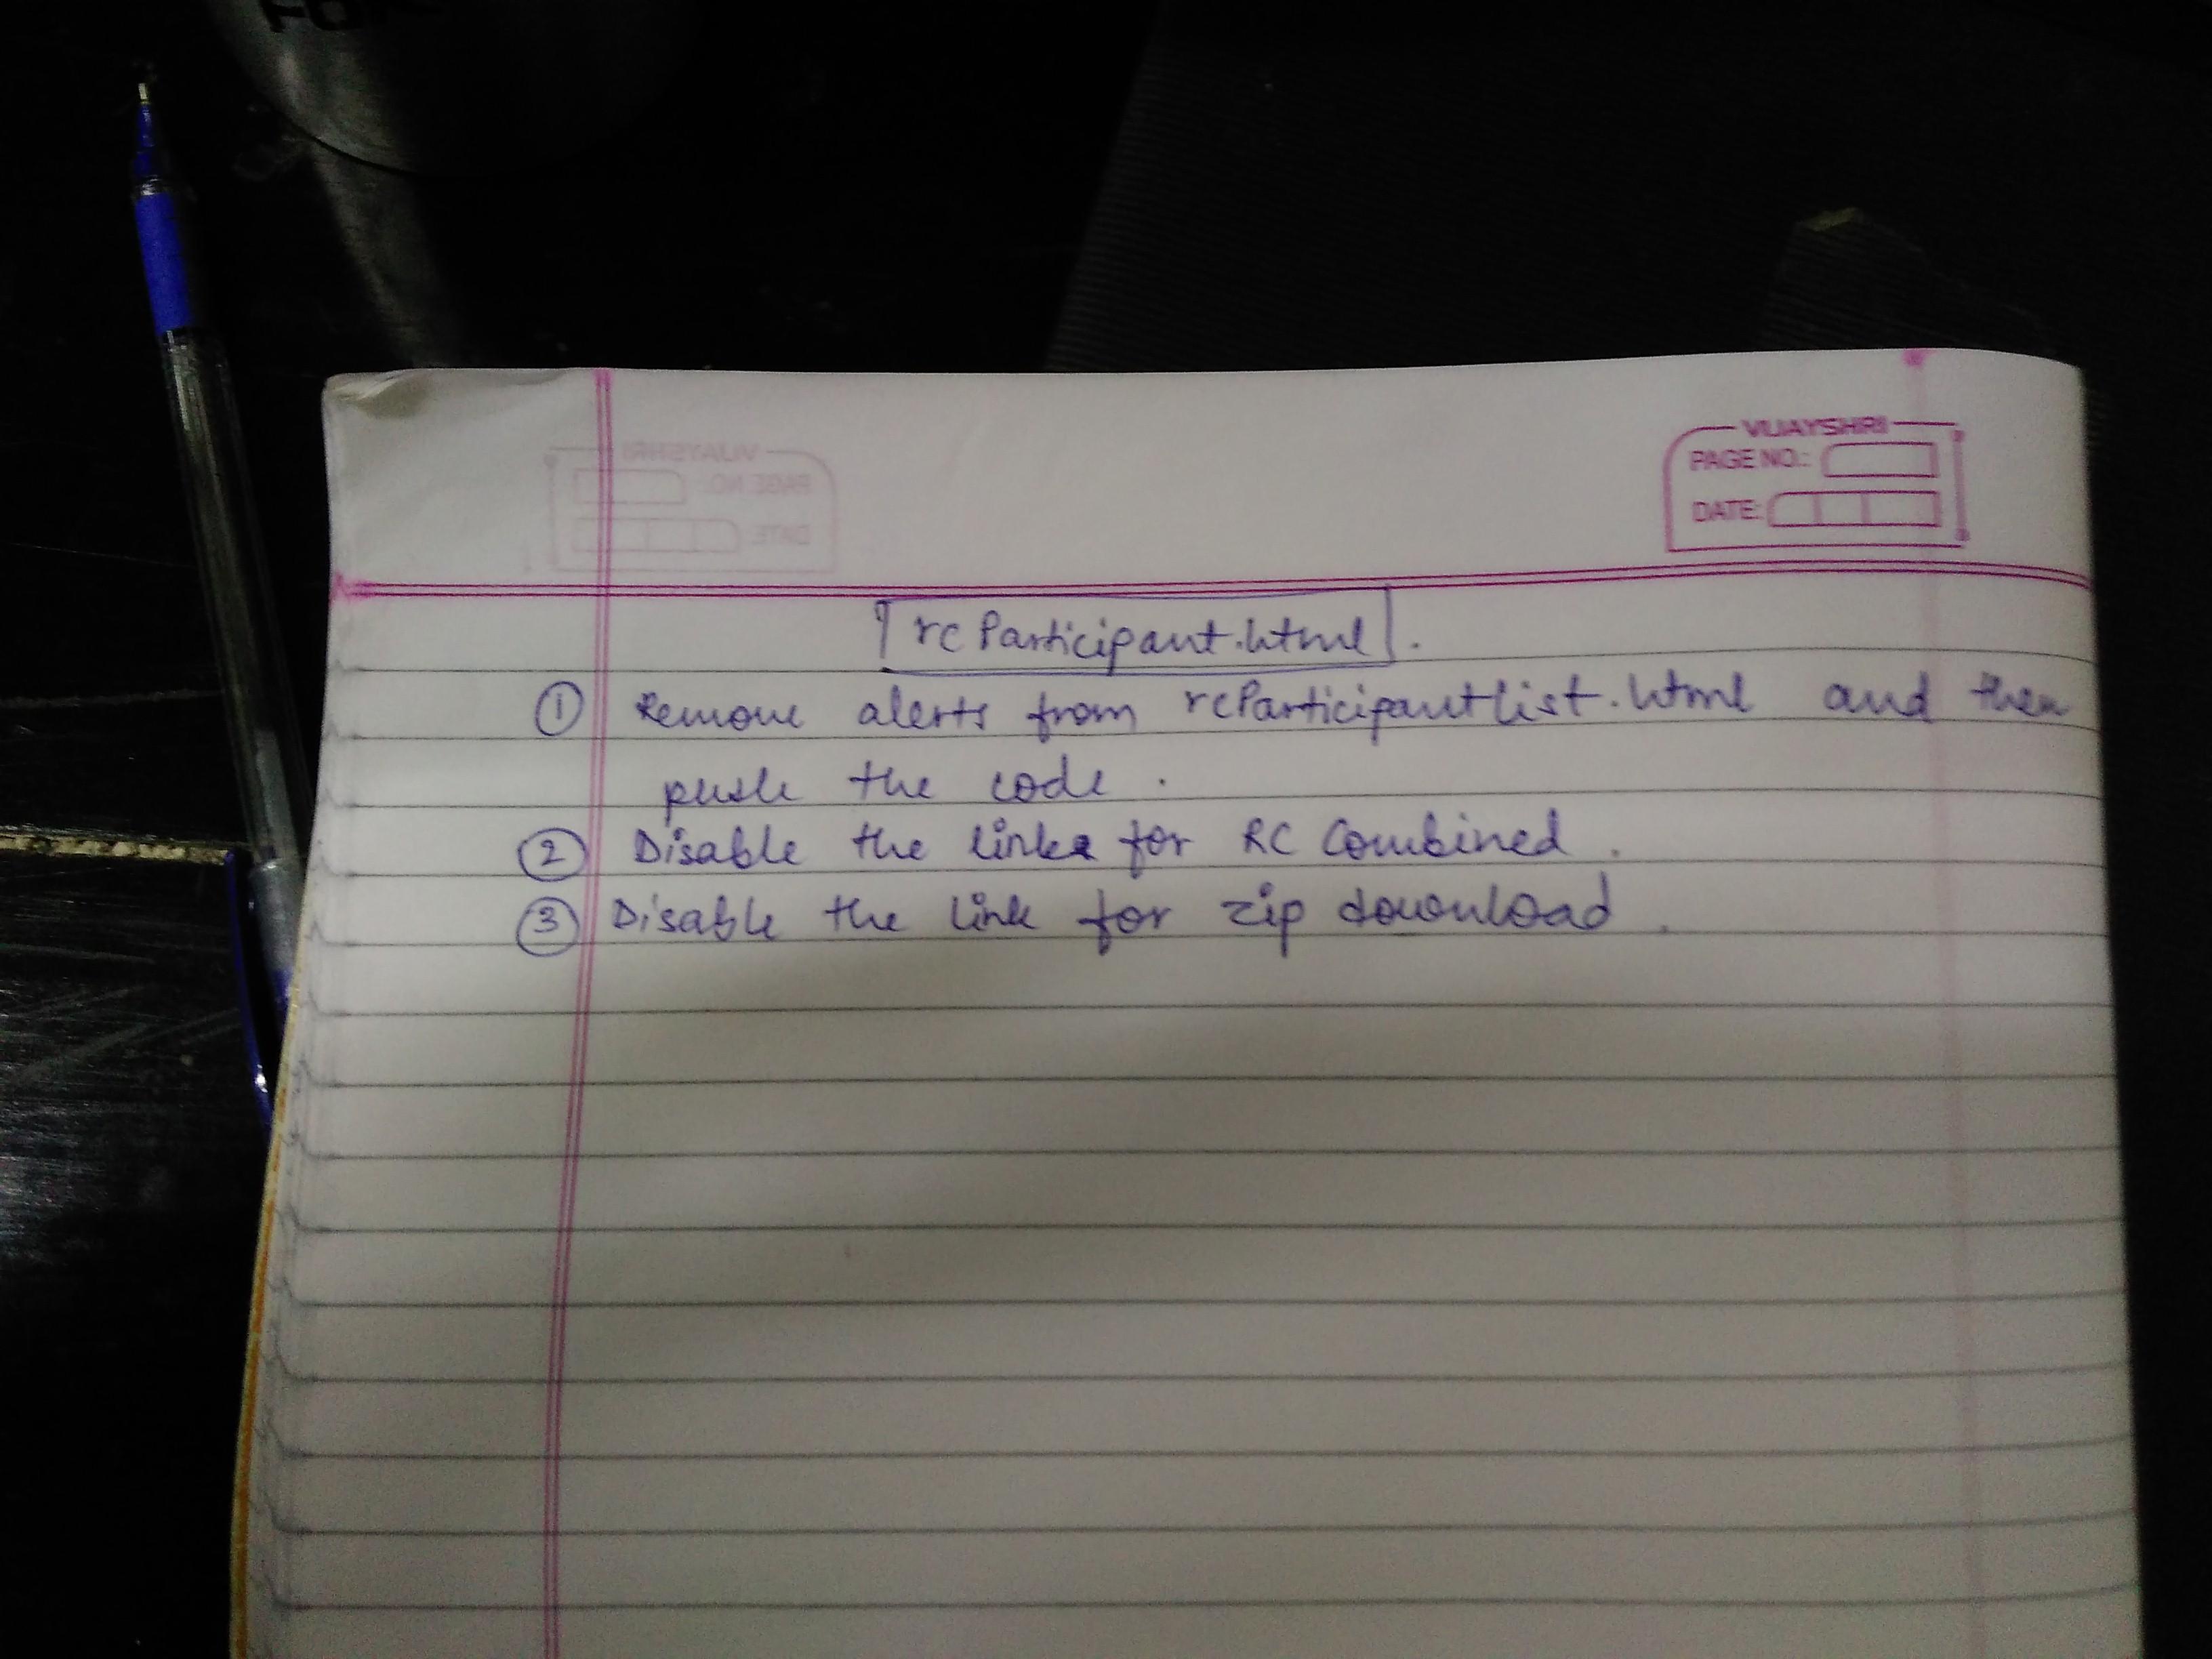 FOR
VIJAYSHRI
PAGE NO.:
DATE:
rcParticipant.html.
① Remove alerts from rcParticipantlist.html and then
push the code.
② Disable the links for RC Combined.
③ Disable the link for zip download.